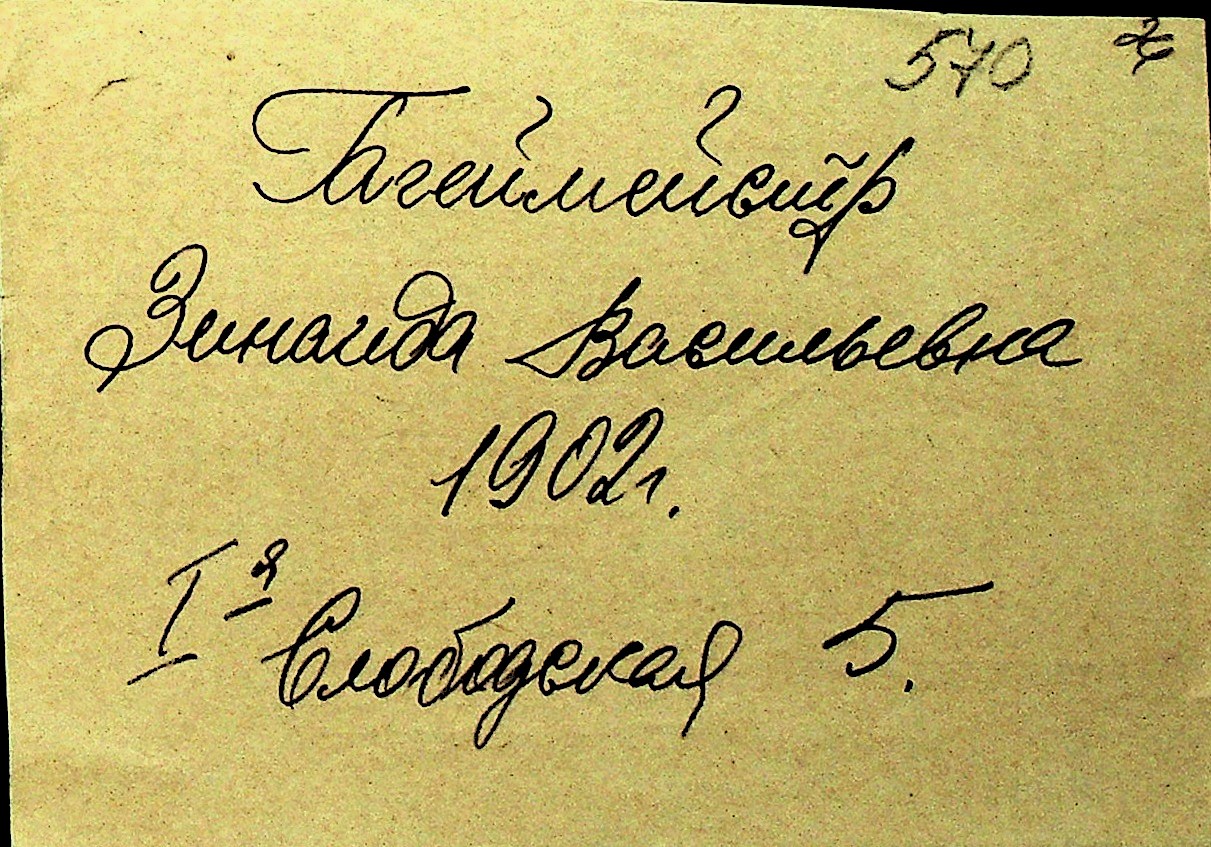 570
Гагеймейстр
Зинаида Васильевна
1902г.
I-я Слободская 5.